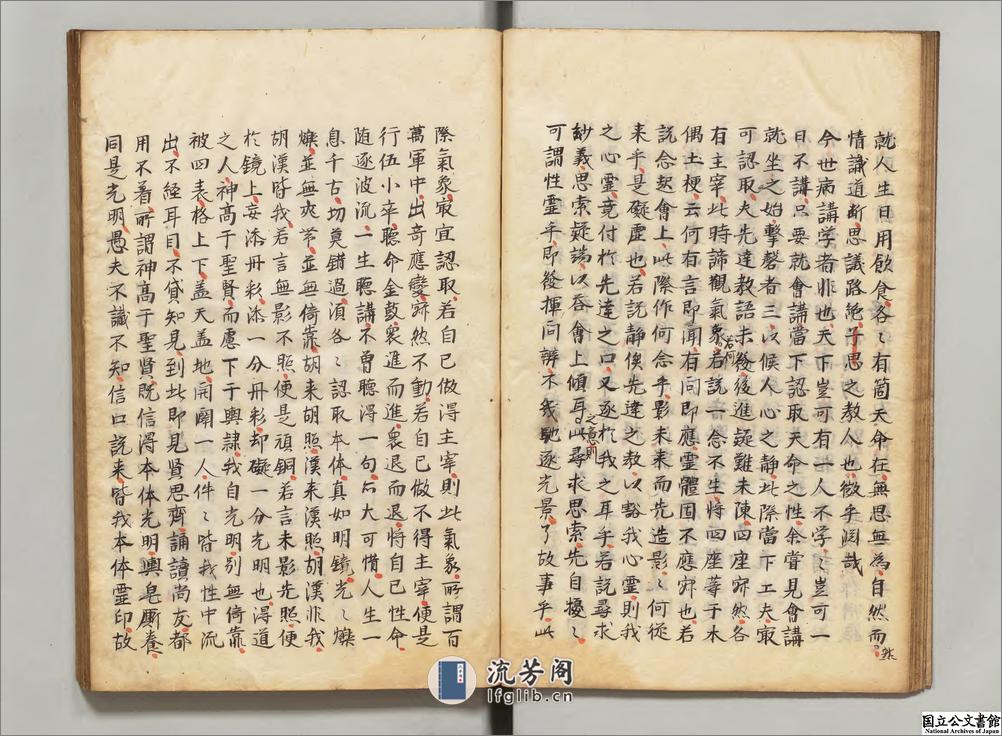 就人生日用飲食各〻有箇天命在無思無為自然而然
情識道斷思議路絶子思之教人也微乎淵哉
今世病講学者非也天下豈可有一人不学〻豈可一
日不講只要就會講當下認取天命之性余嘗見會講
就坐之始擊磬者三以候人心之静此際當下工夫㝡
可認取夫先達教語未後後進疑難未陳四座寂然各
有主宰此時諦觀氣象若何若説一念不生將四座等于木
偶土梗云何有言即聞有问即應霊體囬不應寂也若
説念契會上此際作何念乎影未来而先造影从何從
来乎是礙虚也若説静俟先達之教以豁我心靈則我
之心靈竟付於先達之口又逐於我之耳乎若説尋求
紗義思索疑端以吞會上傾耳之意則此尋求思索先自擾〻
可謂性靈乎即後揮问辨不幾馳逐光景了故事乎此
際氣象㝡宜認取若自已做得主宰則此氣象所謂百
萬軍中出奇應變寂然不動若自已做不得主宰便是
行伍小卒聽命金鼓衆進而進衆退而退將自已性命
随逐波流一生聽講不曽聽得一句六大可惜人生一
息千古切莫錯過湏各〻認取本体真如明鏡光〻爍
爍並無爽节並無倚靠胡来胡照漢来漢照胡漢非我
胡漢皆我若言無影不照便是頑銅若言未影先照便
於鏡上妄添丹彩添一分丹彩却礙一分光明也得道
之人神高于聖賢而慮下于輿隸我自光明别無倚靠
被四表格上下盖天盖地開闢一人件〻皆我性中流
出不經耳目不貸知見到此即見賢思齊誦讀尚友都
用不着所謂神高于聖賢既信得本体光明輿皂厮養
同是光明愚夫不識不知信口説来皆我本体靈印故
流芳阁
lfglib.cn
国立公文書館
National Archives of Japan